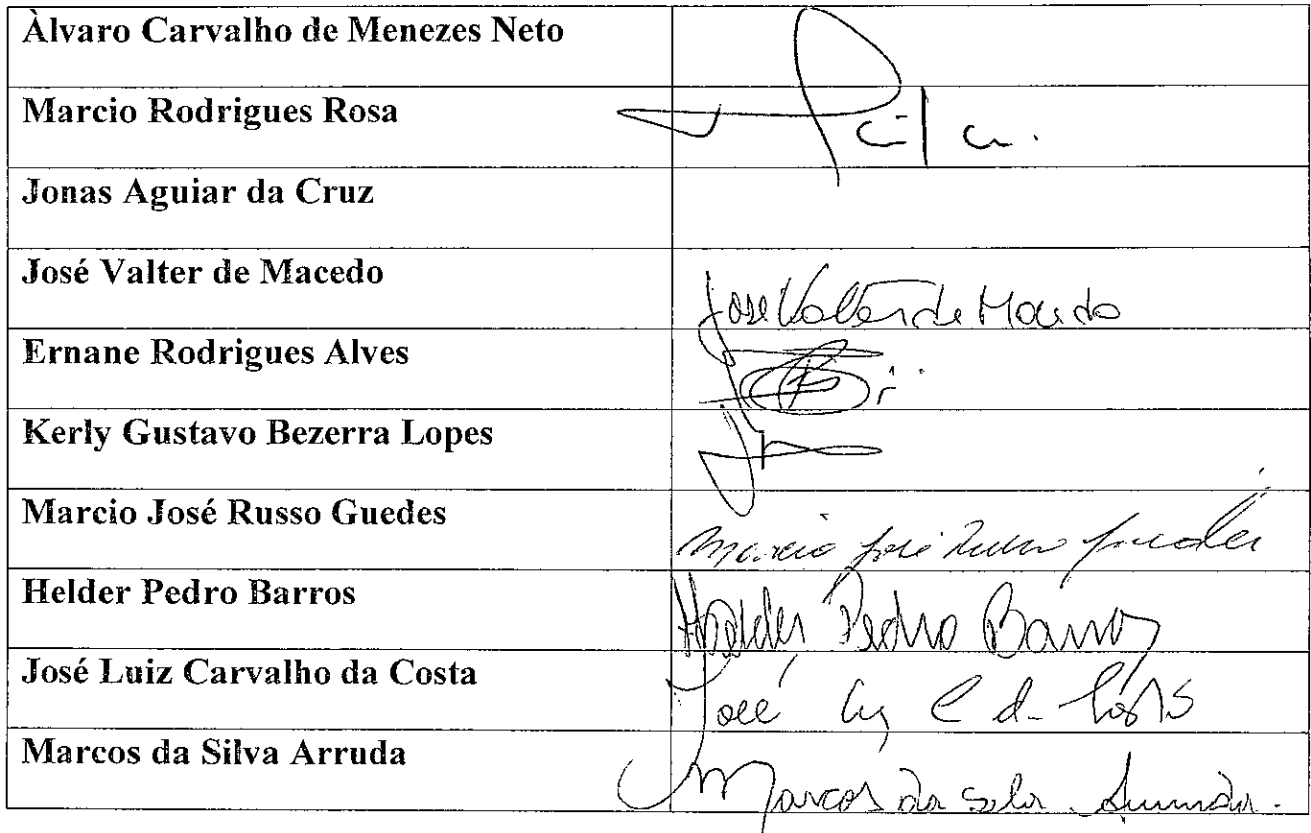 Àlvaro Carvalho de Menezes Neto
Marcio Rodrigues Rosa
Jonas Aguiar da Cruz
José Valter de Macedo
Jose Valter de Macedo
Ernane Rodrigues Alves
Kerly Gustavo Bezerra Lopes
Marcio José Russo Guedes
Marcio José Russo Guedes
Helder Pedro Barros
Helder Pedro Barros
José Luiz Carvalho da Costa
José Luiz C da Costa
Marcos da Silva Arruda
Marcos da Silva Arruda.